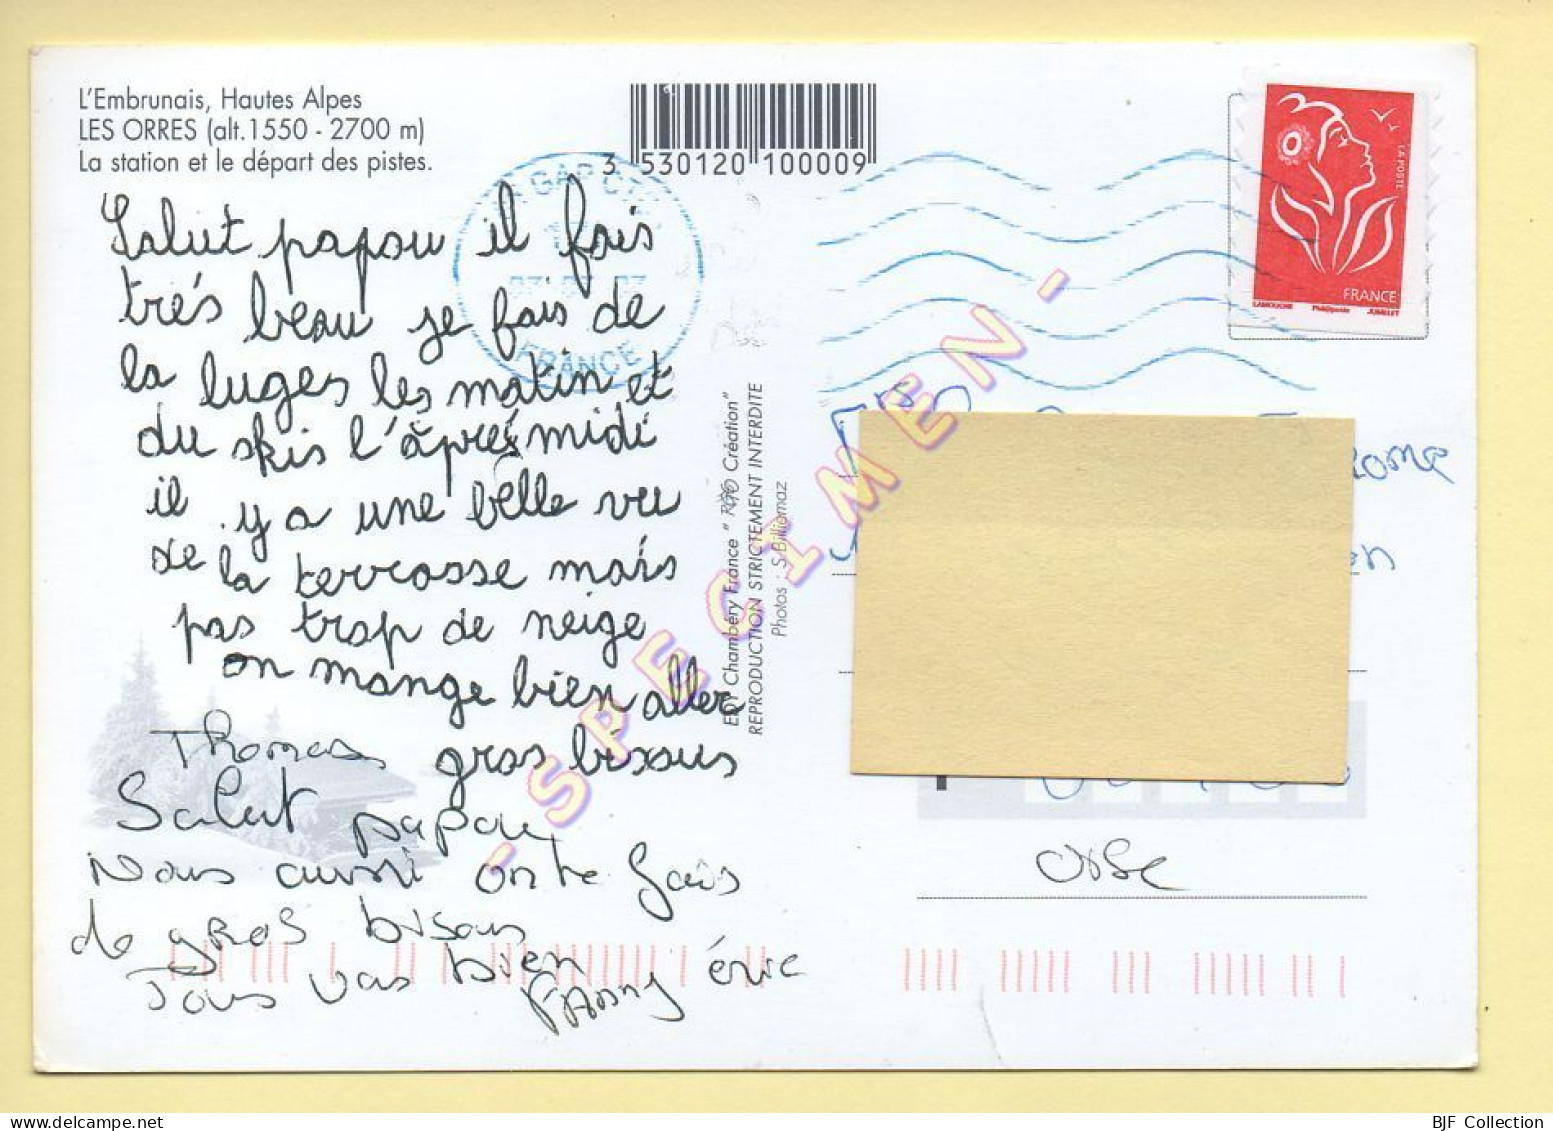 L'Embrunais, Hautes Alpes
LES ORRES (alt.1550 - 2700 m)
La station et le départ des pistes.
3 530120 100009
GAP CT
FRANCE
LA POSTE
FRANCE
LAMOUCHE Phil@poste JUMELET
Salut papou il fais
très beau je fais de
la luges les matin et
du skis l'après midi
il y a une belle vu
de la terrasse mais
pas trop de neige
on mange bien aller
gros bixous
Thomas
Salut papou
Nous aussi on te fais
de gros bisous
Tous vas bien
Fanny éric
Chambéry France " Création"
REPRODUCTION STRICTEMENT INTERDITE
Photos : S. Billiomaz
- SPECIMEN -
Oise
BJF Collection